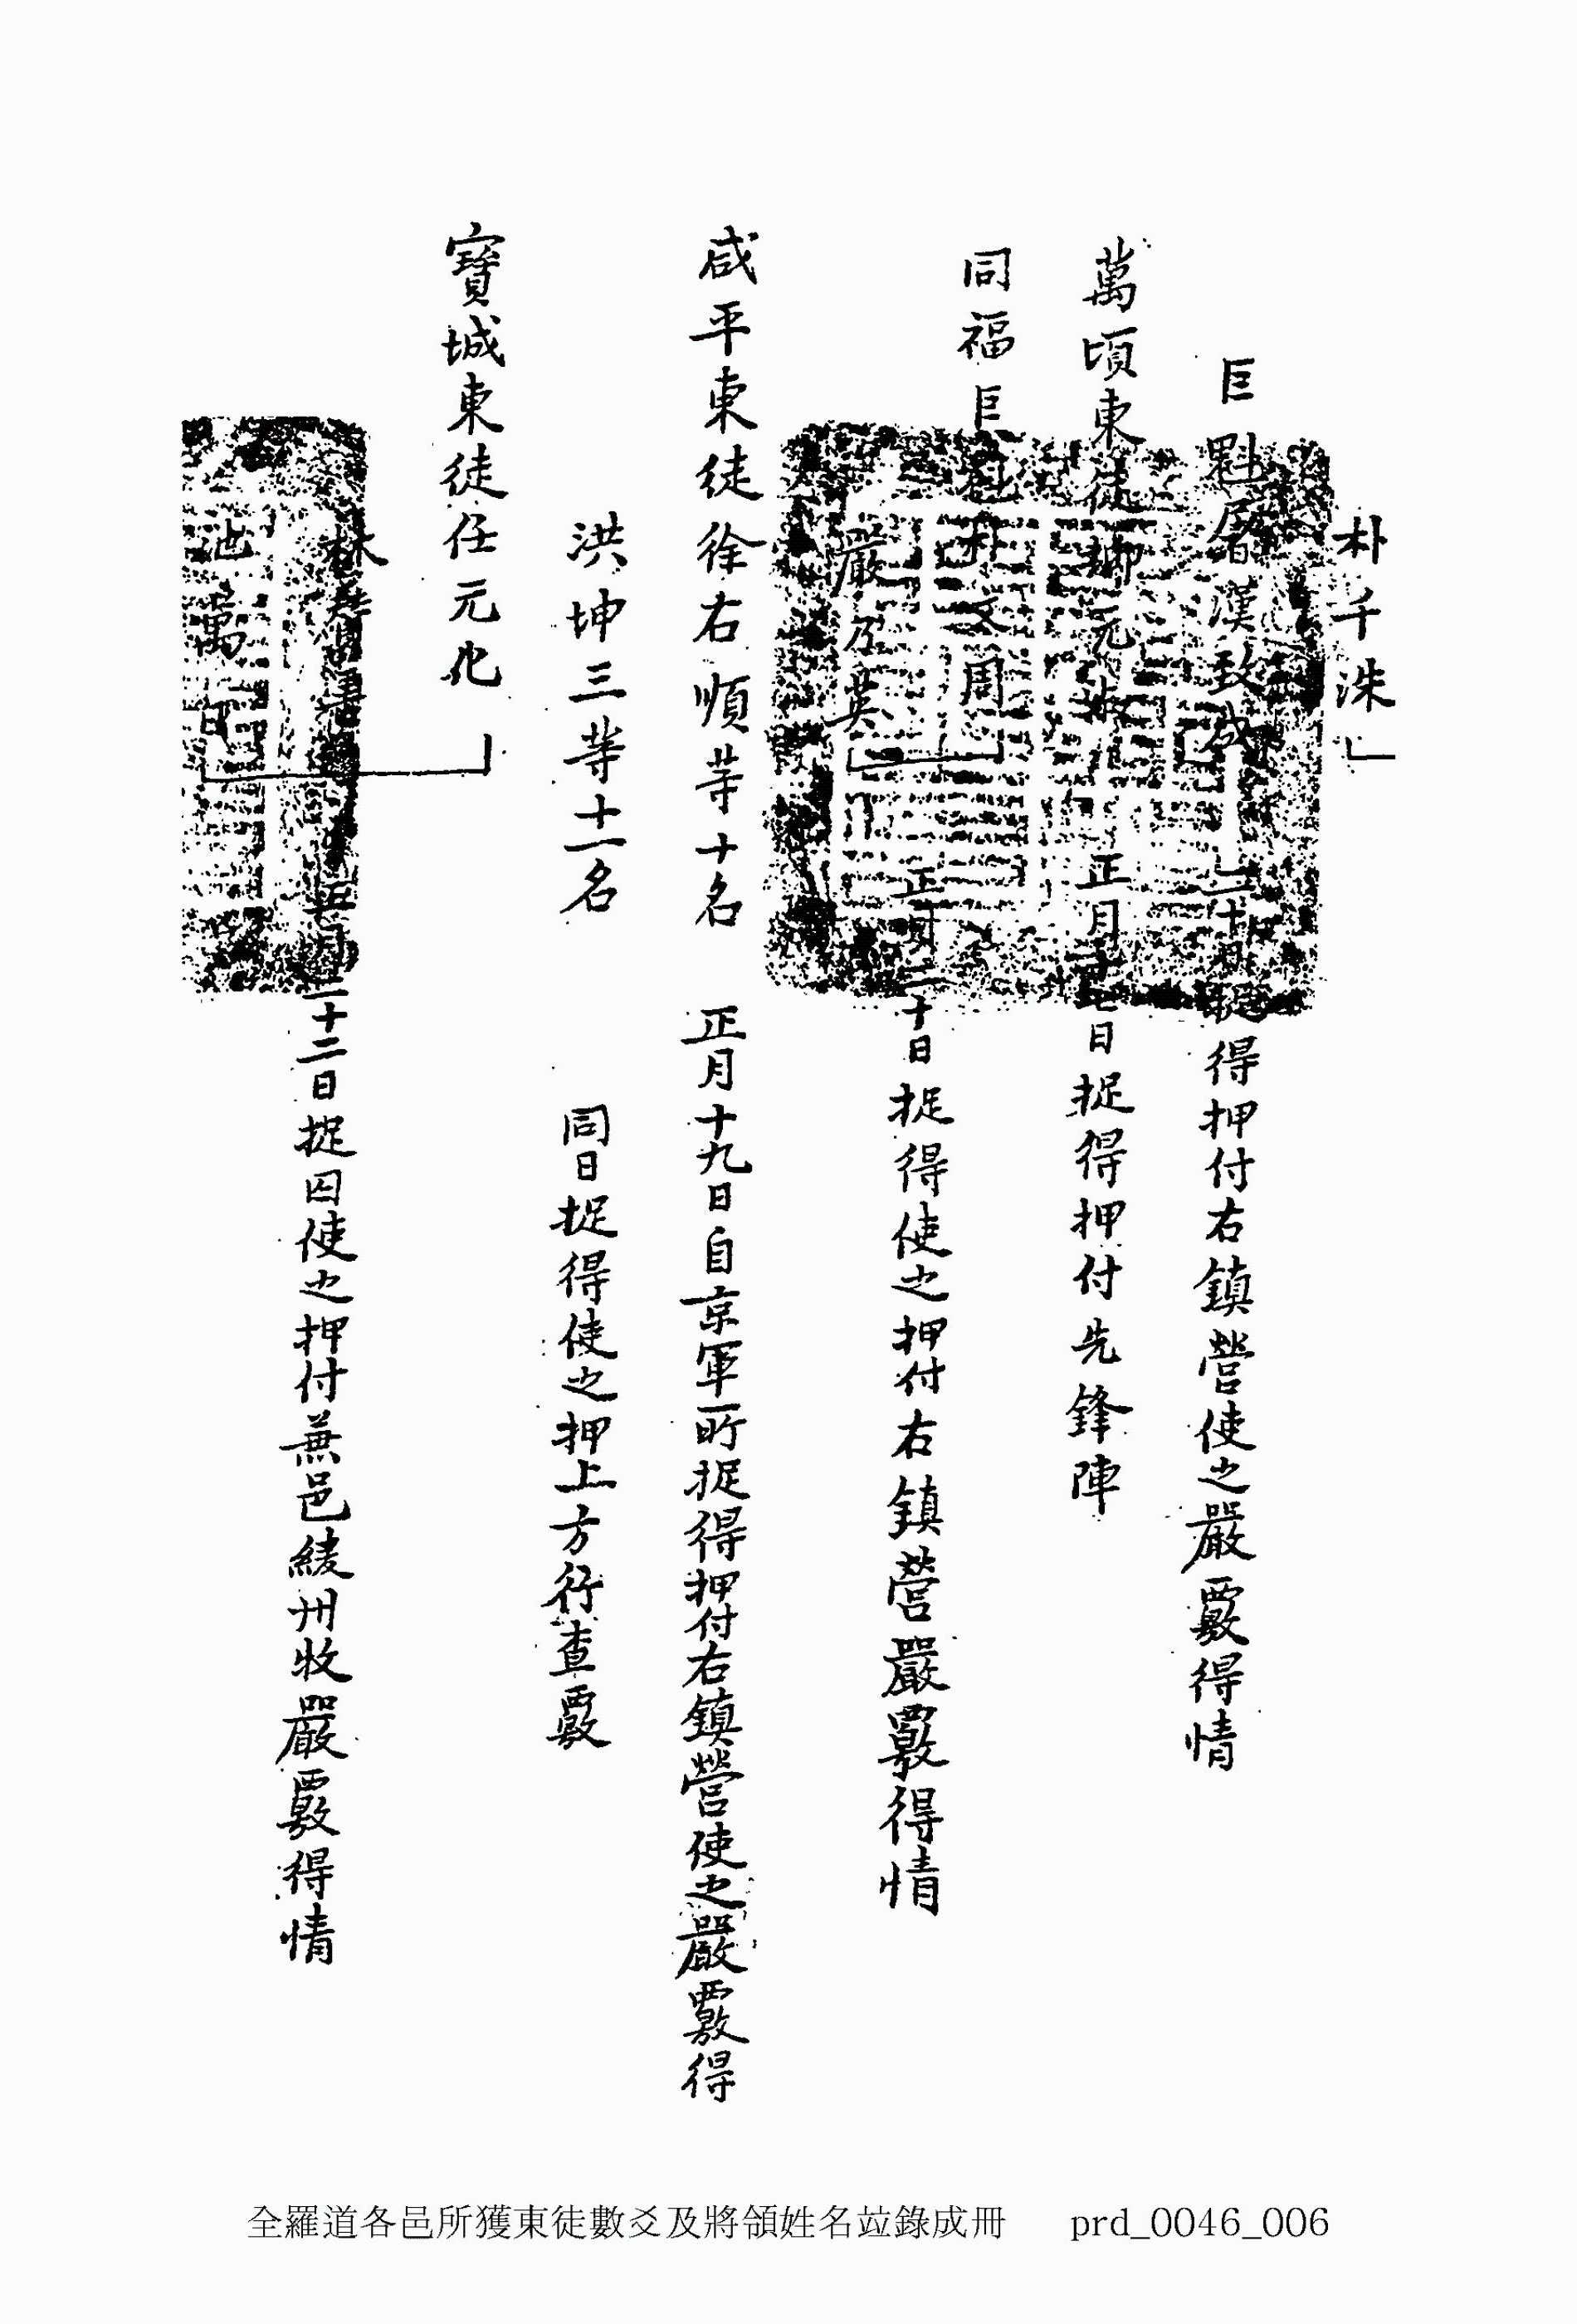 朴千洙
巨魁屠漢致成 二十 捉得押付右鎭營使之嚴覈得情
萬頃東徒 元 正月十七日捉得押付先鋒陣
同福巨魁朴文周
嚴乃英 正月二十日捉得使之押付右鎭營嚴覈得情
咸平東徒徐右順等十名 正月十九日自京軍所捉得押付右鎭營使之嚴覈得
洪坤三等十一名 同日捉得使之押上方行查覈
寶城東徒任元化
林 正月二十二日捉囚使之押付兼邑綾州牧嚴覈得情
池萬
全羅道各邑所獲東徒數爻及將領姓名竝錄成冊 prd_0046_006